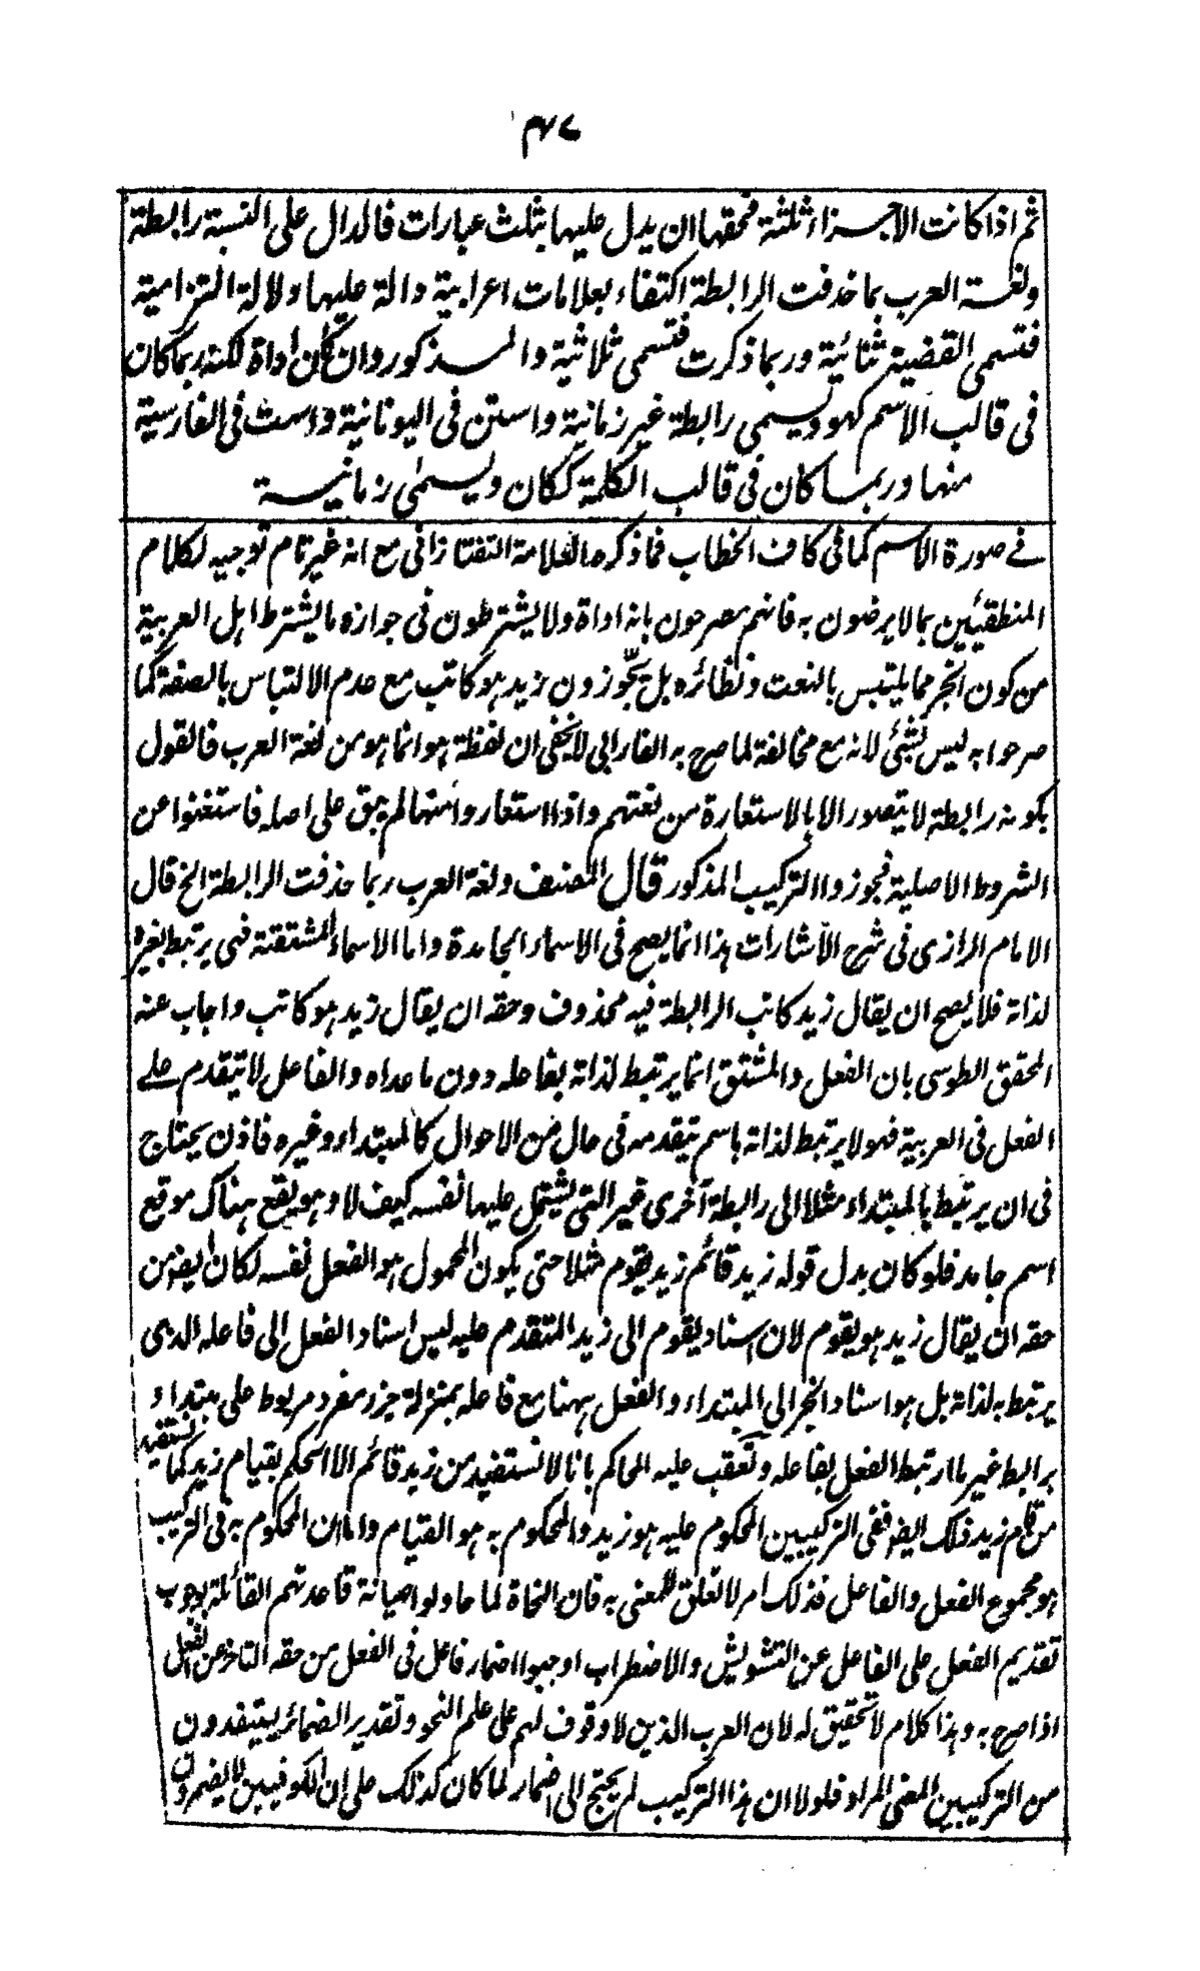 ٣٧٧
ثم اذا كانت الاجزاء ثلثة فحقها ان يدل عليها بثلث عبارات فالدال على النسبة رابطة
ولغة العرب بما حذفت الرابطة اكتفاء بعلامات اعرابية دالة عليها دلالة التزامية
فتسمى القضية ثنائية وربما ذكرت فتسمى ثلاثية والمذكور وان كان اداة لكنه ربما كان
فى قالب الاسم كهو ويسمى رابطة غير زمانية واستن فى اليونانية واست فى الفارسية
منها وربما كان فى قالب الكلمة ككان ويسمى زمانية
فى صورة الاسم كما فى كاف الخطاب فما ذكره العلامة التفتازانى مع انه غير تام توجيه لكلام
المنطقيين بما لا يرضون به فانهم مصرحون بانه اداة ولا يشترطون فى جوازه ما يشترط اهل العربية
من كون الخبر مما يلتبس بالنعت ونظائره بل يجوزون زيد هو كاتب مع عدم الالتباس بالصفة كما
صرحوا به ليس بشئ لانه مع مخالفة لما صرح به الفارابى لا يخفى ان لفظة هو انما هو من لغة العرب فالقول
بكونه رابطة لا يتصور الا بالاستعارة من لغتهم واذا استعاروا منها لم يبق على اصله فاستغنوا عن
الشروط الاصلية فجوزوا التركيب المذكور قال المصنف ولغة العرب ربما حذفت الرابطة الخ قال
الامام الرازى فى شرح الاشارات هذا انما يصح فى الاسماء الجامدة واما الاسماء المشتقة فهى يرتبط بغيره
لذاته فلا يصح ان يقال زيد كاتب الرابطة فيه محذوف وحقه ان يقال زيد هو كاتب واجاب عنه
المحقق الطوسى بان الفعل والمشتق انما يرتبط لذاته بفاعله دون ما عداه والفاعل لا يتقدم على
الفعل فى العربية فهو لا يرتبط لذاته باسم يتقدمه فى حال من الاحوال كالمبتداء وغيره فاذن يحتاج
فى ان يرتبط بالمبتداء مثلا الى رابطة آخرى غير التى يشتمل عليها نفسه كيف لا وهو يقع هناك موقع
اسم جامد فلو كان بدل قوله زيد قائم زيد يقوم مثلا حتى يكون المحمول هو الفعل نفسه لكان ايضا من
حقه ان يقال زيد هو يقوم لان اسناد يقوم الى زيد المتقدم عليه ليس اسناد الفعل الى فاعله الذى
يرتبط به لذاته بل هو اسناد الخبر الى المبتداء والفعل ههنا مع فاعله بمنزلة جزء مفرد مربوط على مبتداء
برابط غير ما ارتبط الفعل بفاعله وتعقب عليه المحاكم بانا لا نستفيد من زيد قائم الا الحكم بقيام زيد كما نستفيد
من قام زيد ذلك ايضا ففى التركيبين المحكوم عليه هو زيد والمحكوم به هو القيام واما ان المحكوم به فى التركيب
هو مجموع الفعل والفاعل فذلك امر لا تعلق للمعنى به فان النحاة لما حاولوا صيانة قاعدتهم القائلة بوجوب
تقديم الفعل على الفاعل عن التشويش والاضطراب اوجبوا اضمار فاعل فى الفعل من حقه التاخر عن الفعل
اذا صرح به وهذا كلام لا تحقيق له لان العرب الذين لا وقوف لهم على علم النحو وتقدير الضمائر يستفيدون
من التركيبين المعنى المراد فلولا ان هذا التركيب لم يحتج الى اضمار لما كان كذلك على ان الكوفيين لا يضمرون